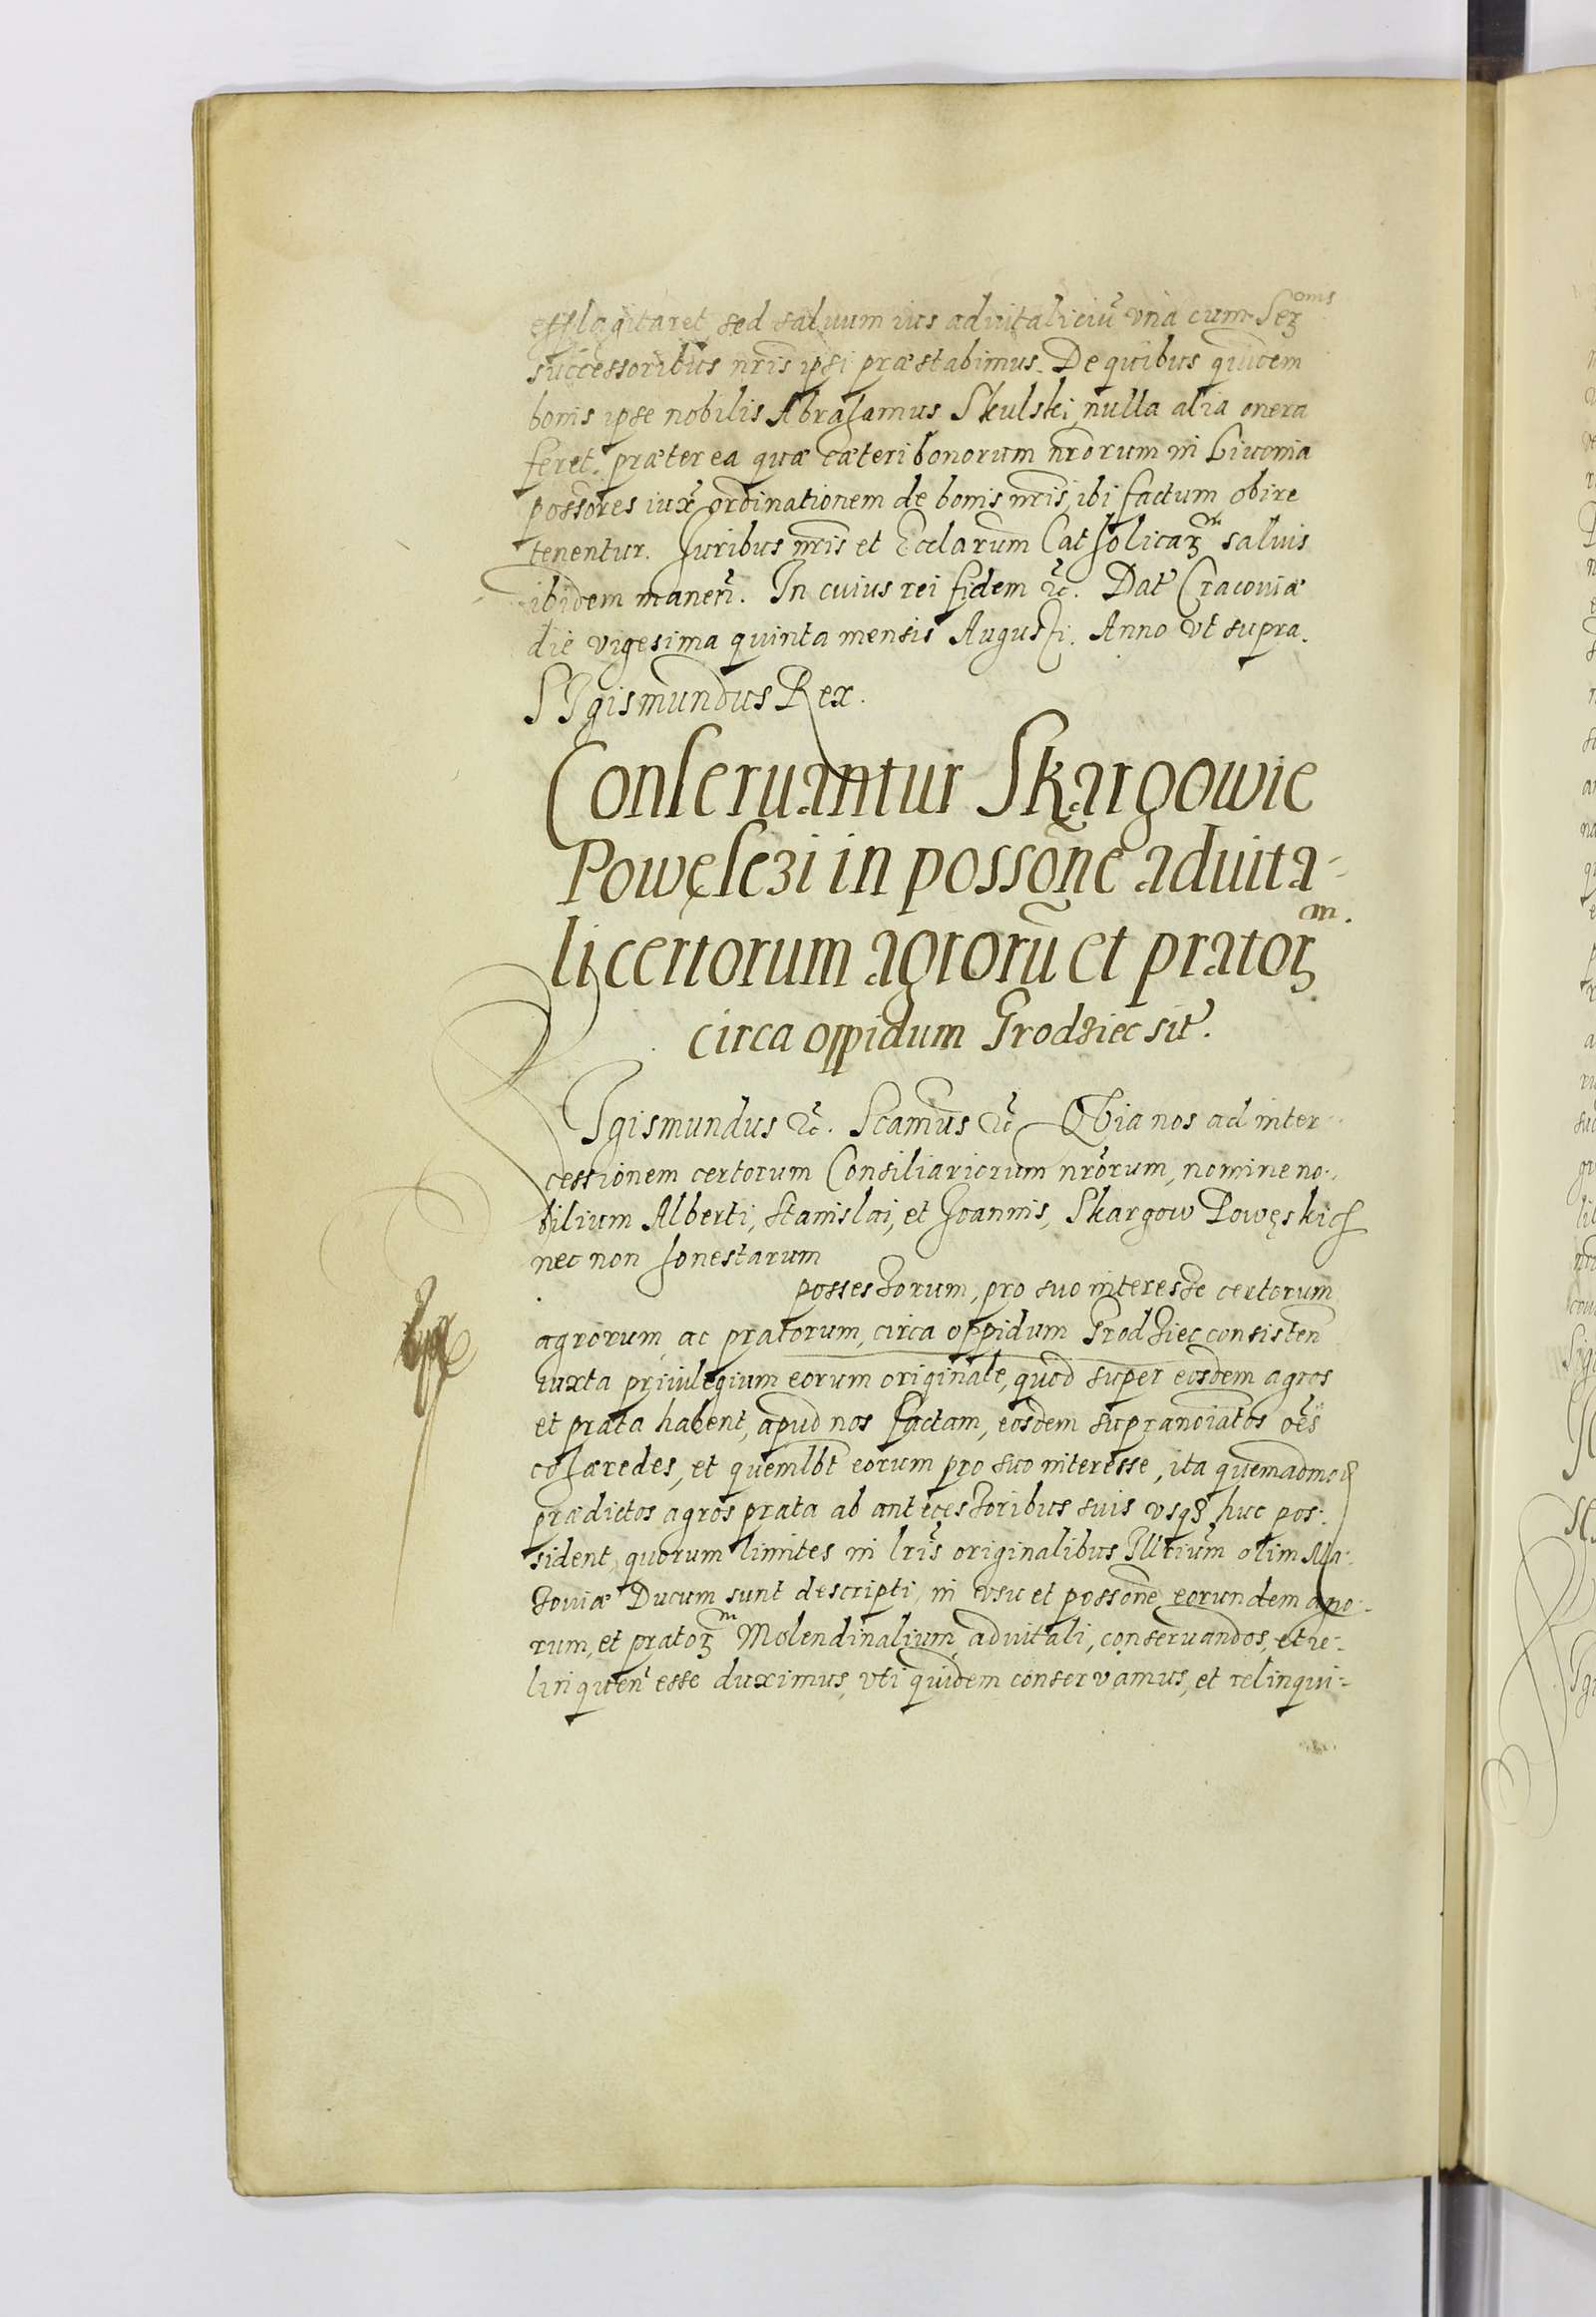 efflagitaret, sed saluum ius aduitaliciũ vna cum Serᵒᵐⁱˢ
successoribus nr̃is ipsi præstabimus. De quibus quidem
bonis ipse nobilis Abrahamus Skulski, nulla alia onera
feret, præterea quæ cæteri bonorum nr̃orum in Liuonia
possores iux̃ ordinationem de bonis nr̃is, ibi factum obire
tenentur. Iuribus nr̃is et Ecclarum Catholicarᵐ saluis
ibidem manen̄. In cuius rei fidem &c̃. Dat̃ Cracouiæ
die vigesima quinta mensis Augusti. Anno vt supra.
SIgismundus Rex.
Conseruantur Skargowie
Powęsczi in possõne aduita-
li certorum agrorũ et pratorᵐ.
circa oppidum Grodziec sit̃.
SIgismundus &c̃. Scamus &c̃ QVia nos ad inter-
cessionem certorum Consiliariorum nr̃orum, nomine no-
bilium Alberti, Stanislai, et Joannis, Skargow Powęskich
nec non honestarum
possessorum, pro suo interesse certorum
agrorum ac pratorum, circa oppidum Grodziec consisten̄
iuxta priuilegium eorum originale, quod super eosdem agros
et prata habent, apud nos factam, eosdem supranoiatos oẽs
cohæredes, et quemlbt eorum pro suo interesse, ita quemadmod
prædictos agros prata ab antecessoribus suis vsqȝ huc pos-
sident, quorum limites in lr̃is originalibus Illrium olim Ma-
zouiæ Ducum sunt descripti, in vsu et possone eorundem agro-
rum, et pratorᵐ Molendinalium, aduitali, conseruandos, et re-
linquen̄ esse duximus, vti quidem conservamus, et relinqui-